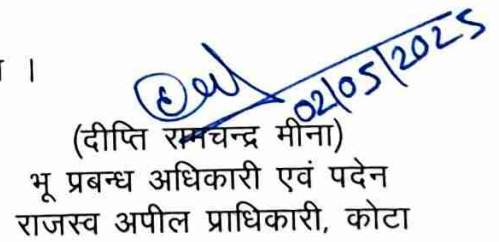 ।
02/05/2025
(दीप्ति रामचन्द्र मीना)
भू प्रबन्ध अधिकारी एवं पदेन
राजस्व अपील प्राधिकारी, कोटा